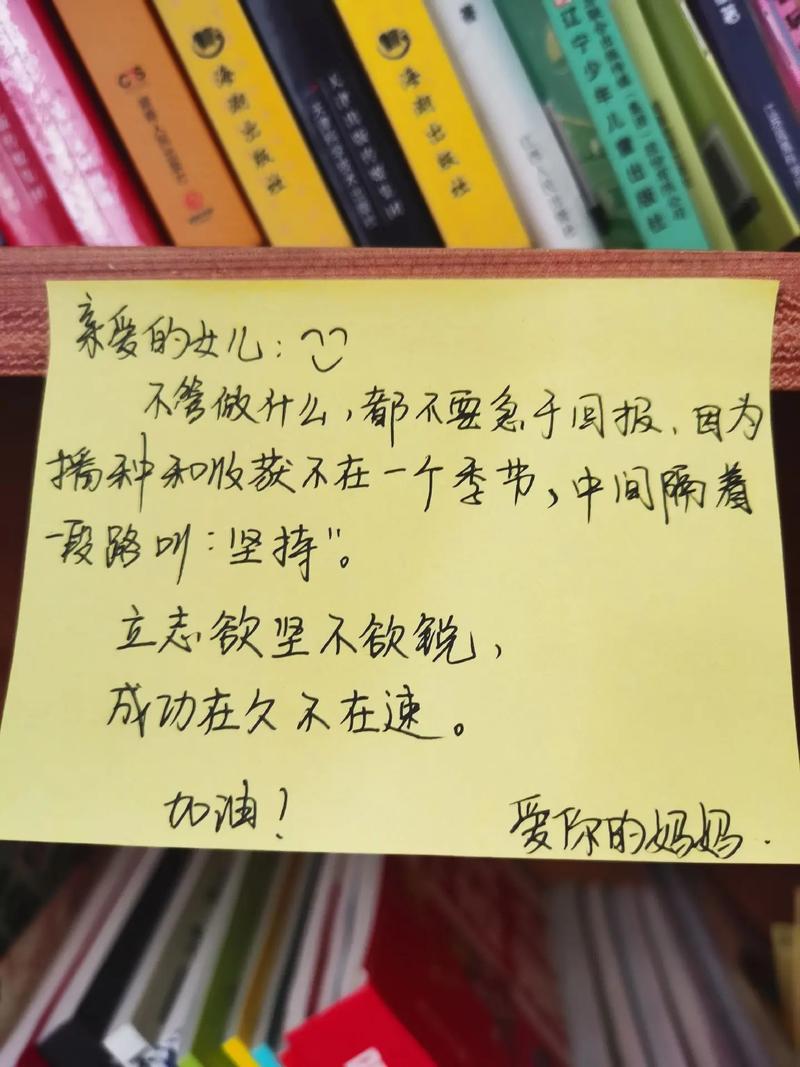 海潮出版社
海潮出版社
著
辽宁少年儿童出版社
亲爱的女儿:
不管做什么,都不要急于回报,因为
播种和收获不在一个季节,中间隔着
一段路叫:坚持"。
立志欲坚不欲锐,
成功在久不在速。
加油!
爱你的妈妈.